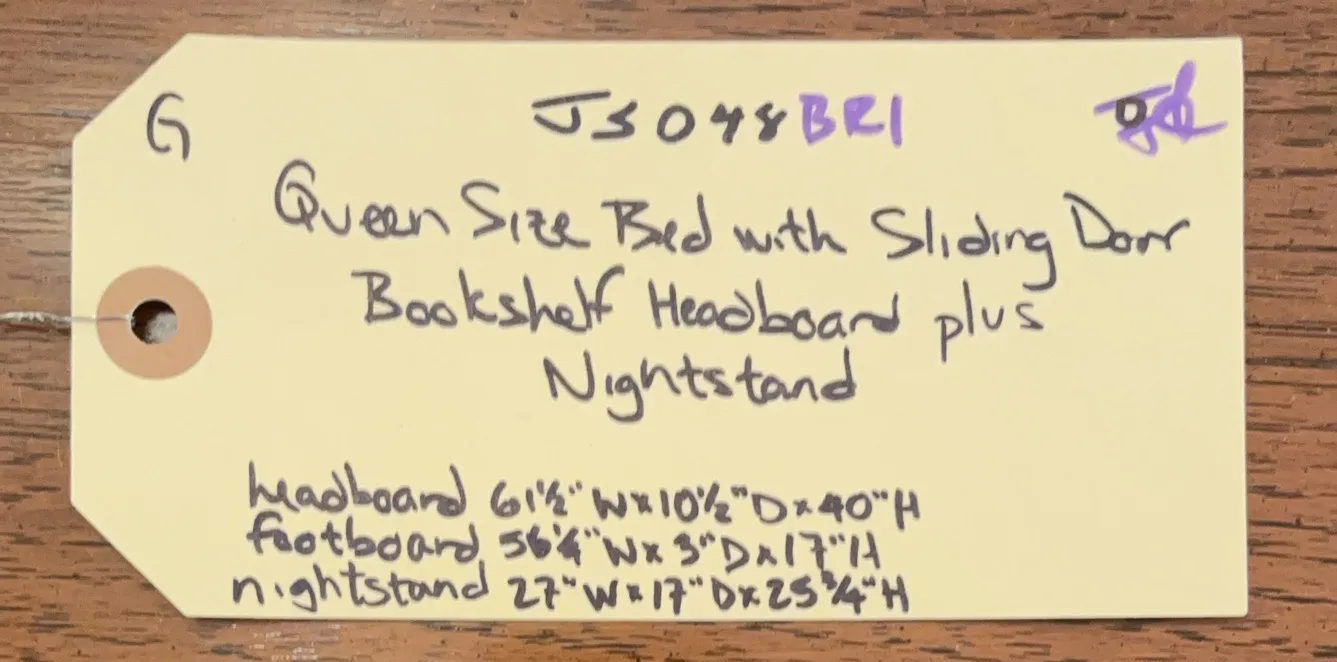 G JS048BRI
Queen Size Bed with Sliding Door
Bookshelf Headboard plus
Nightstand
headboard 61½" W x 10½" D x 40" H
footboard 56¼" W x 3" D x 17" H
nightstand 27" W x 17" D x 25¾" H